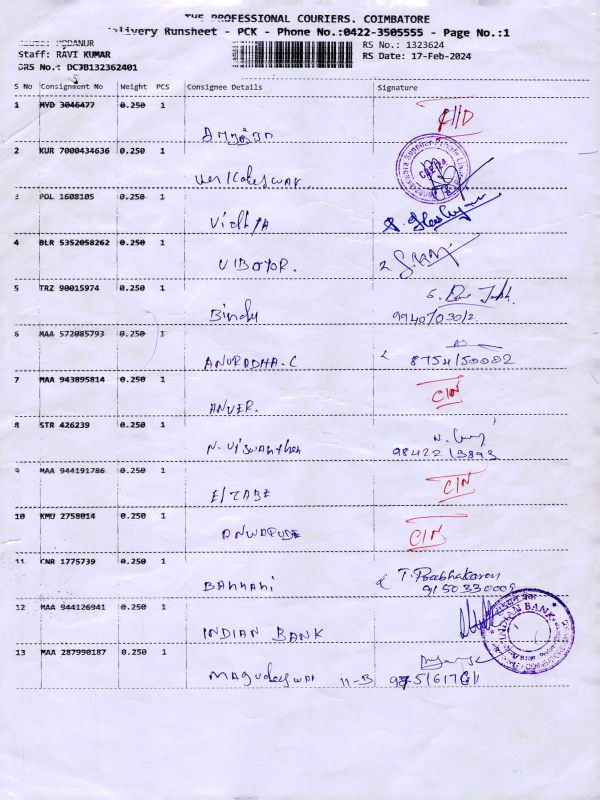 THE PROFESSIONAL COURIERS. COIMBATORE
Delivery Runsheet - PCK - Phone No.:0422-3505555 - Page No.:1
RS No.: 1323624
Staff: RAVI KUMAR
RS Date: 17-Feb-2024
DRS No.: DCJB132362401
S No Consignment No Weight PCS Consignee Details Signature
1 HYD 3046477 0.250 1
2 KUR 7000434636 0.250 1 Venkateswar
3 POL 1608105 0.250 1 Vidhya
4 BLR 5352058262 0.250 1
5 TRZ 90015974 0.250 1 Bindu
6 MAA 572085793 0.250 1 ANURADHA.C
7 MAA 943895814 0.250 1 ANVER. C/N
8 STR 426239 0.250 1 N. Viswanthan
9 MAA 944191786 0.250 1 C/N
10 KMU 2758014 0.250 1 C/N
11 CNR 1775739 0.250 1 T. Prabhakaran
12 MAA 944126941 0.250 1 INDIAN BANK INDIAN BANK
13 MAA 287990187 0.250 1 Magudeswar 11-B